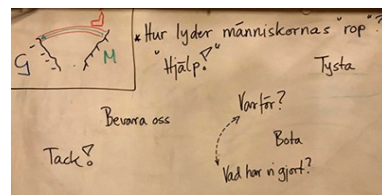 * Hur lyder människornas "rop"?
"Hjälp!"
Tysta
G
M
Bevara oss
Varför?
Bota
Tack!
Vad har vi gjort?